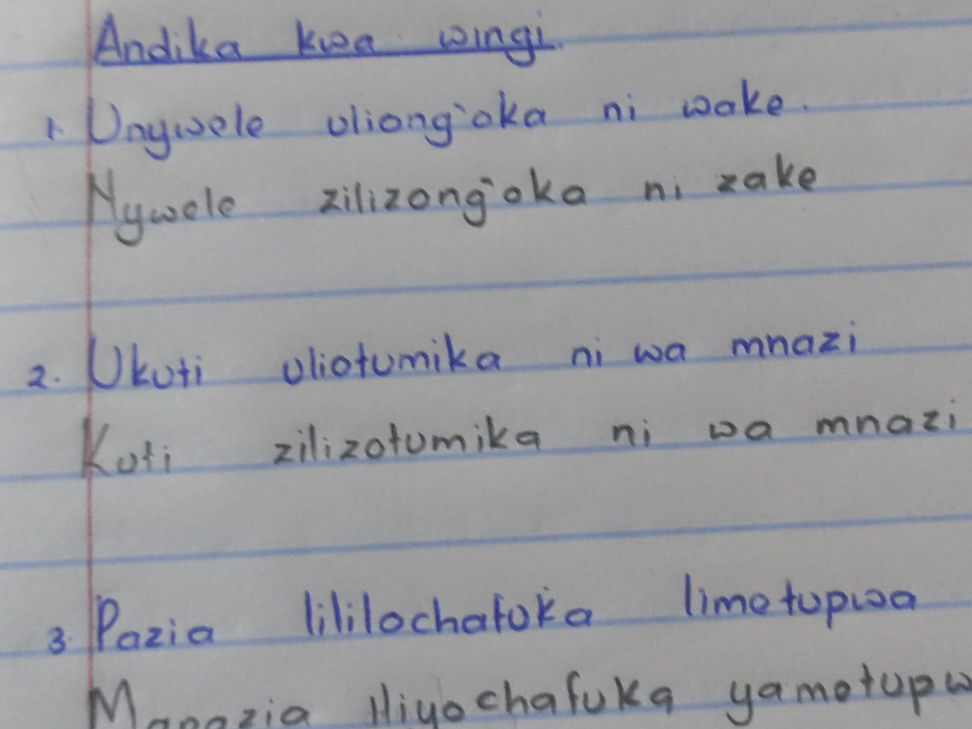 Andika kwa wingi.
1. Unywele uliong'oka ni wake.
Nywele zilizong'oka ni zake
2. Ukuti uliotumika ni wa mnazi
Kuti zilizotumika ni wa mnazi
3. Pazia lililochafuka limetupwa
Mapazia iliyochafuka yametupw